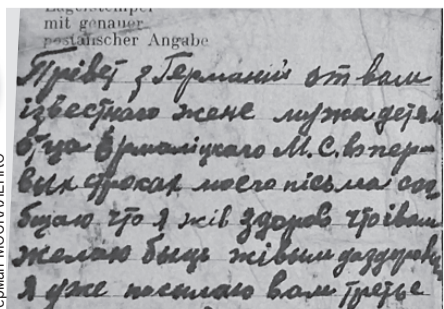 Lagerstempel
mit genauer
postalischer Angabe
Прівет з Германиї от вам
ізвестного жене мужа детям
отца Ермаліцкаго М.С. в пер-
вых строках моего пісьма соо
бщаю что я жів здоров что і вам
желаю быць жівым да здоровы
Я уже посилаю вам третье